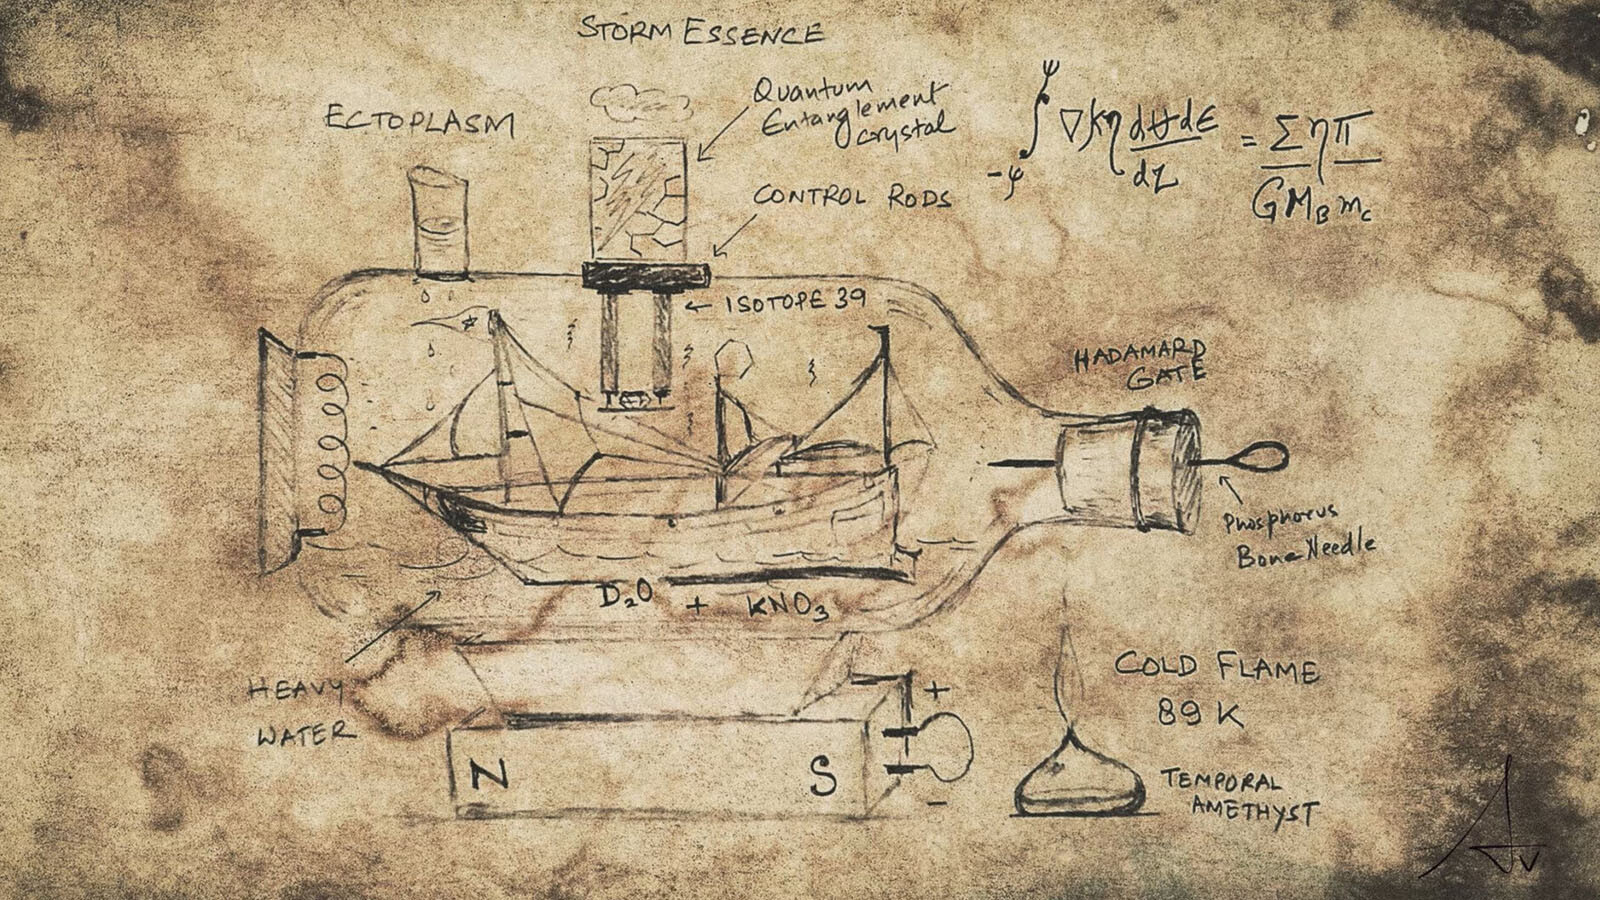 STORM ESSENCE
ECTOPLASM
Quantum
Entanglement
crystal
CONTROL RODS
ISOTOPE 39
∫ ψ -ψ ∇kη dϑdε / dz = Σηπ / GM_B m_c
HADAMARD
GATE
Phosphorus
Bone Needle
D₂O + KNO₃
HEAVY
WATER
N S
+
-
COLD FLAME
89 K
TEMPORAL
AMETHYST